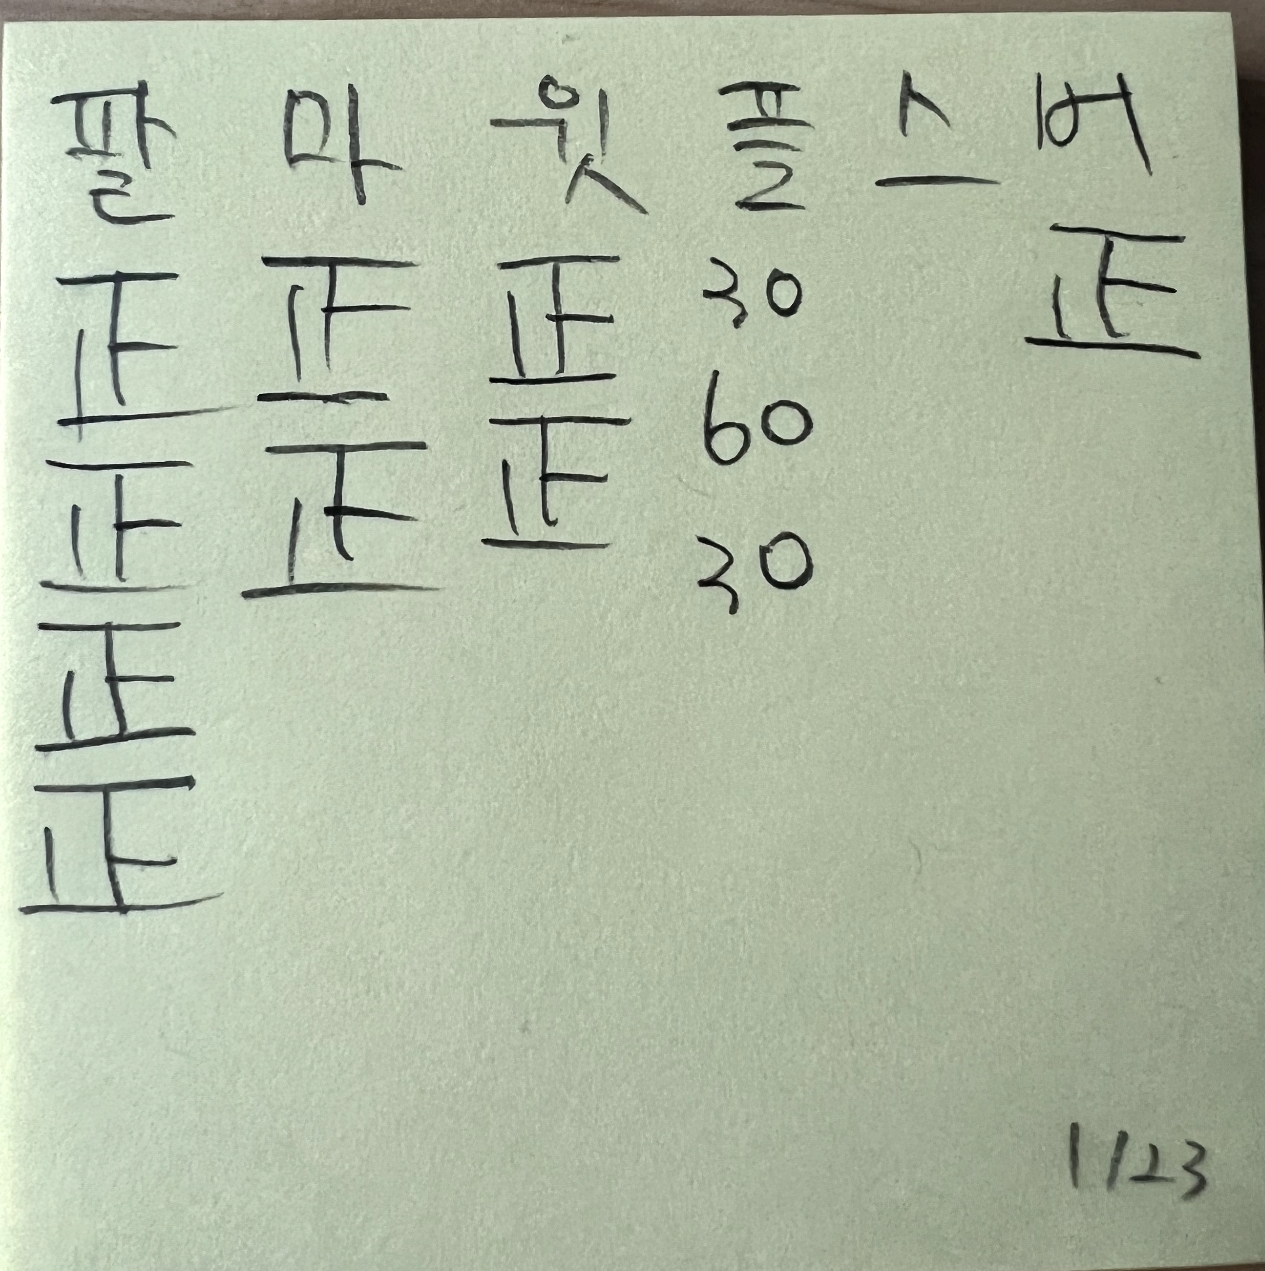 팔 마 윗 플 스 버
正 正 正 30 正
正 正 正 60
正 30
正
1/23